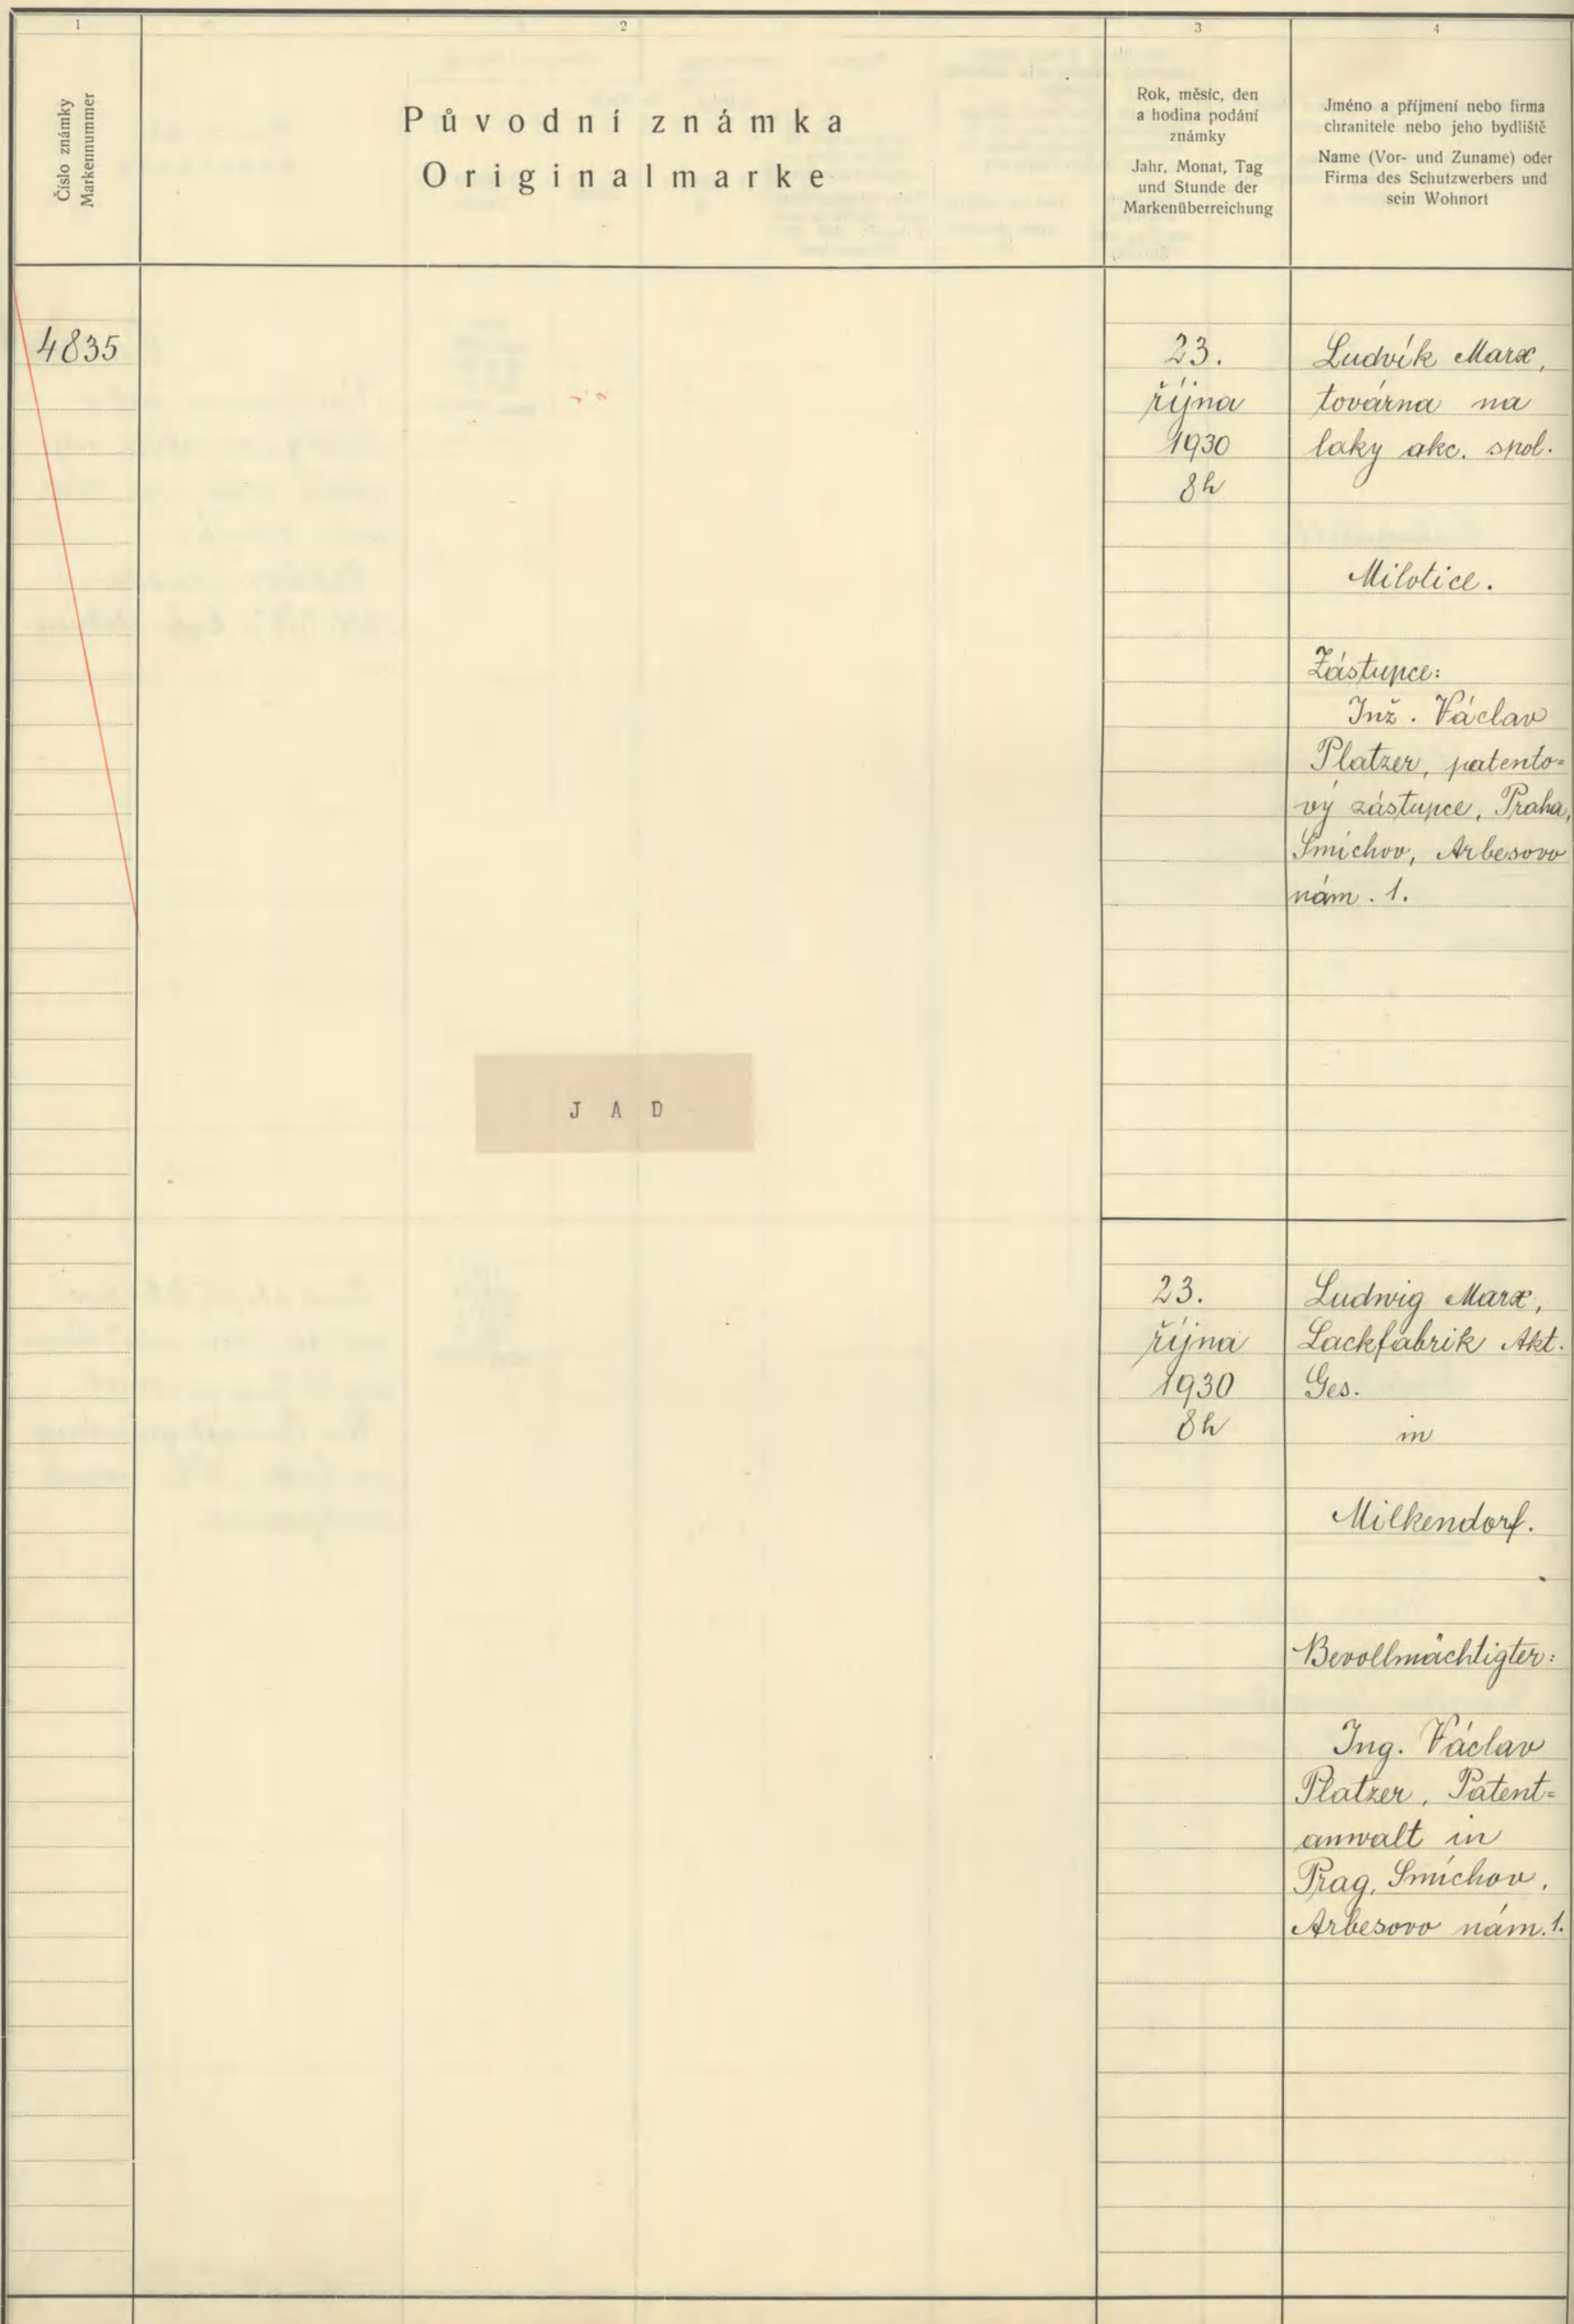 1
2
3
4
Číslo známky
Markennummer
Původní známka
Originalmarke
Rok, měsíc, den
a hodina podání
známky
Jahr, Monat, Tag
und Stunde der
Markenüberreichung
Jméno a příjmení nebo firma
chranitele nebo jeho bydliště
Name (Vor- und Zuname) oder
Firma des Schutzwerbers und
sein Wohnort
4835
23.
října
1930
8h
Ludvík Marx,
továrna na
laky akc. spol.
Milotice.
Zástupce:
Inž. Václav
Platzer, patento=
vý zástupce, Praha,
Smíchov, Arbesovo
nám. 1.
J A D
23.
října
1930
8h
Ludwig Marx,
Lackfabrik Akt.
Ges.
in
Milkendorf.
Bevollmächtigter:
Ing. Václav
Platzer, Patent=
anwalt in
Prag, Smíchov,
Arbesovo nám. 1.